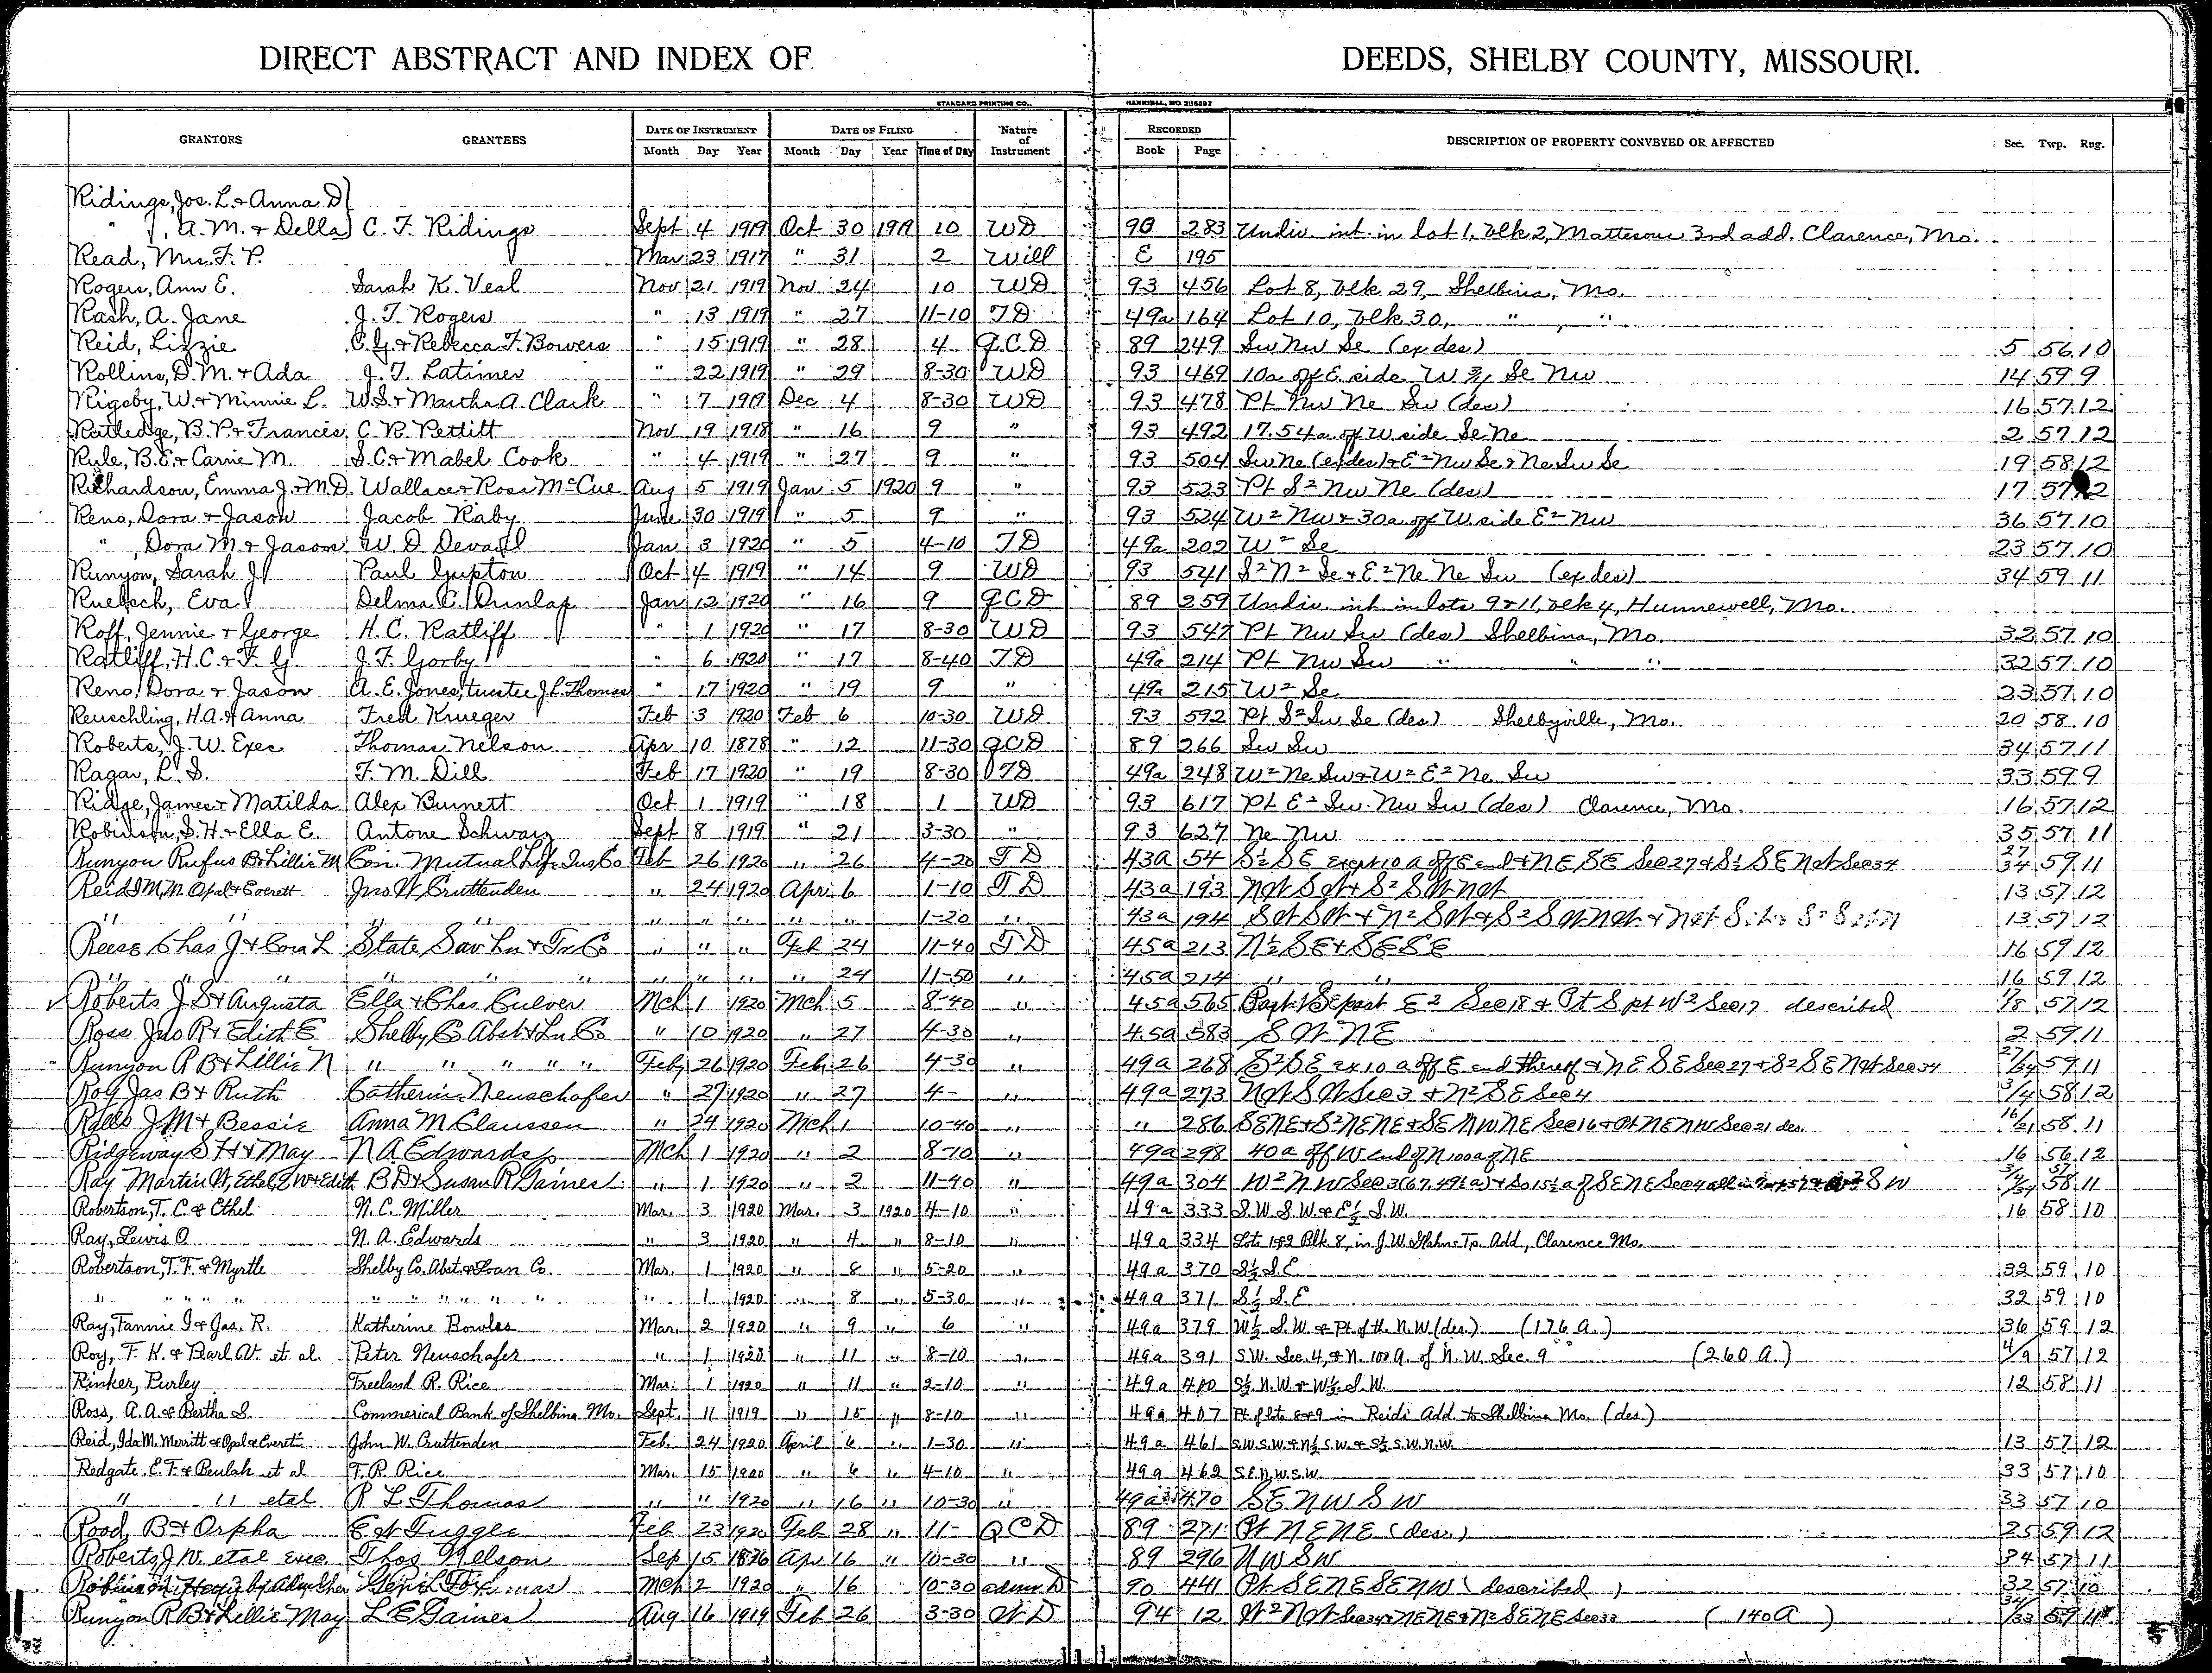 DIRECT ABSTRACT AND INDEX OF DEEDS, SHELBY COUNTY, MISSOURI.
STANDARD PRINTING CO., HANNIBAL, MO.
GRANTORS GRANTEES DATE OF INSTRUMENT DATE OF FILING Nature of Instrument RECORDED DESCRIPTION OF PROPERTY CONVEYED OR AFFECTED Sec. Twp. Rng.
Month Day Year Month Day Year Time of Day Book Page
Ridings, Jos. L. & Anna D
" , A. M. & Della C. F. Ridings Sept 4 1919 Oct 30 1919 10 WD 90 283 Undiv. int. in lot 1, blk 2, Mattesons 3rd add. Clarence, Mo.
Read, Mrs. F. P. Mar 23 1917 " 31 2 Will E 195
Rogers, Ann E. Sarah K. Veal Nov 21 1919 Nov 24 10 WD 93 456 Lot 8, blk 29, Shelbina, Mo.
Rash, A. Jane J. T. Rogers " 13 1919 " 27 11-10 TD 49a 164 Lot 10, blk 30, " , "
Reid, Lizzie C. G. & Rebecca F. Bowers " 15 1919 " 28 4 QCD 89 249 Sw Nw Se (ex des) 5 56 10
Rollins, D. M. & Ada J. T. Latimer " 22 1919 " 29 8-30 WD 93 469 10a off E. side W 3/4 Se Nw 14 59 9
Rigsby, W. & Minnie L. W. S. & Martha A. Clark " 7 1919 Dec 4 8-30 WD 93 478 Pt Nw Ne Sw (des) 16 57 12
Ratledge, B. P. & Francis C. R. Pettitt Nov 19 1918 " 16 9 " 93 492 17.54a off W side Se Ne 2 57 12
Rule, B. E. & Carrie M. S. C. & Mabel Cook " 4 1919 " 27 9 " 93 504 Sw Ne (ex des) & E² Nw Se & Ne Sw Se 19 58 12
Richardson, Emma J. & M. D. Wallace & Rosa McCue Aug 5 1919 Jan 5 1920 9 " 93 523 Pt S² Nw Ne (des) 17 57 12
Reno, Dora & Jason Jacob Raby June 30 1919 " 5 9 " 93 524 W² Nw & 30a off W side E² Nw 36 57 10
" , Dora M. & Jason W. D. Devaul Jan 3 1920 " 5 4-10 TD 49a 202 W² Se 23 57 10
Runyon, Sarah J. Paul Gupton Oct 4 1919 " 14 9 WD 93 541 S² N² Se & E² Ne Ne Sw (ex des) 34 59 11
Ruebsch, Eva Delma C. Dunlap Jan 12 1920 " 16 9 QCD 89 259 Undiv. int in lots 9 & 11, blk 4, Hunnewell, Mo.
Roff, Jennie & George H. C. Ratliff " 1 1920 " 17 8-30 WD 93 547 Pt Nw Sw (des) Shelbina, Mo. 32 57 10
Ratliff, H. C. & F. G. J. F. Gorby " 6 1920 " 17 8-40 TD 49a 214 Pt Nw Sw " " " 32 57 10
Reno, Dora & Jason A. E. Jones, trustee J. L. Thomas " 17 1920 " 19 9 " 49a 215 W² Se 23 57 10
Reuschling, H. A. & Anna Fred Krueger Feb 3 1920 Feb 6 10-30 WD 93 592 Pt S² Sw Se (des) Shelbyville, Mo. 20 58 10
Roberts, J. W. Exec Thomas Nelson Apr 10 1878 " 12 11-30 QCD 89 266 Sw Sw 34 57 11
Ragar, L. S. F. M. Dill Feb 17 1920 " 19 8-30 TD 49a 248 W² Ne Sw & W² E² Ne Sw 33 59 9
Ridge, James & Matilda Alex Burnett Oct 1 1919 " 18 1 WD 93 617 Pt E² Sw Nw Sw (des) Clarence, Mo. 16 57 12
Robinson, S. H. & Ella E. Antone Schwarz Sept 8 1919 " 21 3-30 " 93 627 Ne Nw 35 57 11
Runyon Rufus B & Lillie M Con. Mutual Life Ins Co Feb 26 1920 " 26 4-20 TD 43a 54 S½ SE except 10 a off E end & NE SE Sec 27 & S½ SE NW Sec 34 27 34 59 11
Reid I M, M Opal & Everett Jno W Cruttenden " 24 1920 Apr 6 1-10 TD 43a 193 NW SW & S² SW NW 13 57 12
" " " " " " " " " 1-20 " 43a 194 SW SW & N² SW & S² SW NW & 13 57 12
Reese Chas J & Cora L State Sav Ln & Tr Co " " " Feb 24 11-40 TD 45a 213 N½ SE & SE SE 16 59 12
" " " " " " " " " " 24 11-50 " 45a 214 " " 16 59 12
Roberts J S & Augusta Ella & Chas Culver Mch 1 1920 Mch 5 8-40 " 45a 565 Part SE part E² Sec 18 & Pt S pt W² Sec 17 described 57 12
Ross Jas R & Edith E Shelby Co Abst & Ln Co " 10 1920 " 27 4-30 " 45a 583 SW NE 2 59 11
Runyon R B & Lillie N " " " " " Feby 26 1920 Feb 26 4-30 " 49a 268 S² SE ex 10 a off E end thereof & NE SE Sec 27 & S² SE NW Sec 34 27/34 59 11
Roy Jas B & Ruth Catherine Neuschafer " 27 1920 " 27 4- " 49a 273 NW SW Sec 3 & N² SE Sec 4 3/4 58 12
Ralls J M & Bessie Anna M Claussen " 24 1920 Mch 1 10-40 " " 286 SE NE & S² NE NE & SE NW NE Sec 16 & Pt NE NW Sec 21 des 16/21 58 11
Ridgeway S H & May N A Edwards Mch 1 1920 " 2 8-10 " 49a 298 40a off W end of N 100a of NE 16 56 12
Ray Martin W, Ethel, E W & Edith B D & Susan R Gaines " 1 1920 " 2 11-40 " 49a 304 W² NW Sec 3 (67.49½a) & So 15½ a of SE NE Sec 4 all in SW 58 11
Robertson, T. C. & Ethel N. C. Miller Mar. 3 1920 Mar. 3 1920 4-10 " 49a 333 S.W. S.W. & E½ S.W. 16 58 10
Ray, Lewis O. N. A. Edwards " 3 1920 " 4 " 8-10 " 49a 334 Lots 1 & 2 Blk 8, in J. W. Hahns Tp. Add, Clarence Mo.
Robertson, T. F. & Myrtle Shelby Co. Abst. & Loan Co. Mar. 1 1920 " 8 " 5-20 " 49a 370 S½ S.E. 32 59 10
" " " " " " " " " " " " 1 1920 " 8 " 5-30 " 49a 371 S½ S.E 32 59 10
Ray, Fannie I & Jas. R. Katherine Bowles Mar. 2 1920 " 9 " 6 " 49a 379 W½ S.W. & Pt of the N.W. (des.) (176 a.) 36 59 12
Roy, F. K. & Pearl V. et al Peter Neuschafer " 1 1920 " 11 " 8-10 " 49a 391 S.W. Sec. 4, & N. 100 A. of N.W. Sec. 9 (260 A.) 4/9 57 12
Rinker, Purley Freeland R. Rice Mar. 1 1920 " 11 " 2-10 " 49a 400 S½ N.W. & W½ S.W. 12 58 11
Ross, A. A. & Bertha S. Commerical Bank of Shelbina Mo. Sept. 11 1919 " 15 " 8-10 " 49a 407 Pt of lots 8 & 9 in Reids Add. to Shelbina Mo. (des.)
Reid, Ida M. Merritt & Opal & Everett John W. Cruttenden Feb. 24 1920 April 6 " 1-30 " 49a 461 S.W. S.W. & N½ S.W. & S½ S.W. N.W. 13 57 12
Redgate, E. T. & Beulah et al F. R. Rice Mar. 15 1920 " 6 " 4-10 " 49a 462 S.E. N.W. S.W. 33 57 10
" " etal R L Thomas " " 1920 " 16 " 10-30 " 49a 470 SE NW SW 33 57 10
Rood, B & Orpha E W Tuggle Feb 23 1920 Feb 28 " 11- QCD 89 271 Pt NE NE (des.) 25 59 12
Roberts J W. etal exec. Thos Nelson Sep 15 1876 Apr 16 " 10-30 " 89 296 NW SW 34 57 11
by Adm Mch 2 1920 " 16 10-30 Adm D 90 441 Pt SE NE SE NW (described) 32 57 10
Runyon R B & Lillie May L E Gaines Aug 16 1919 Feb 26 3-30 WD 94 12 W² NW Sec 34 & NE NE & N² SE NE Sec 33 (140 A) 34/33 59 11